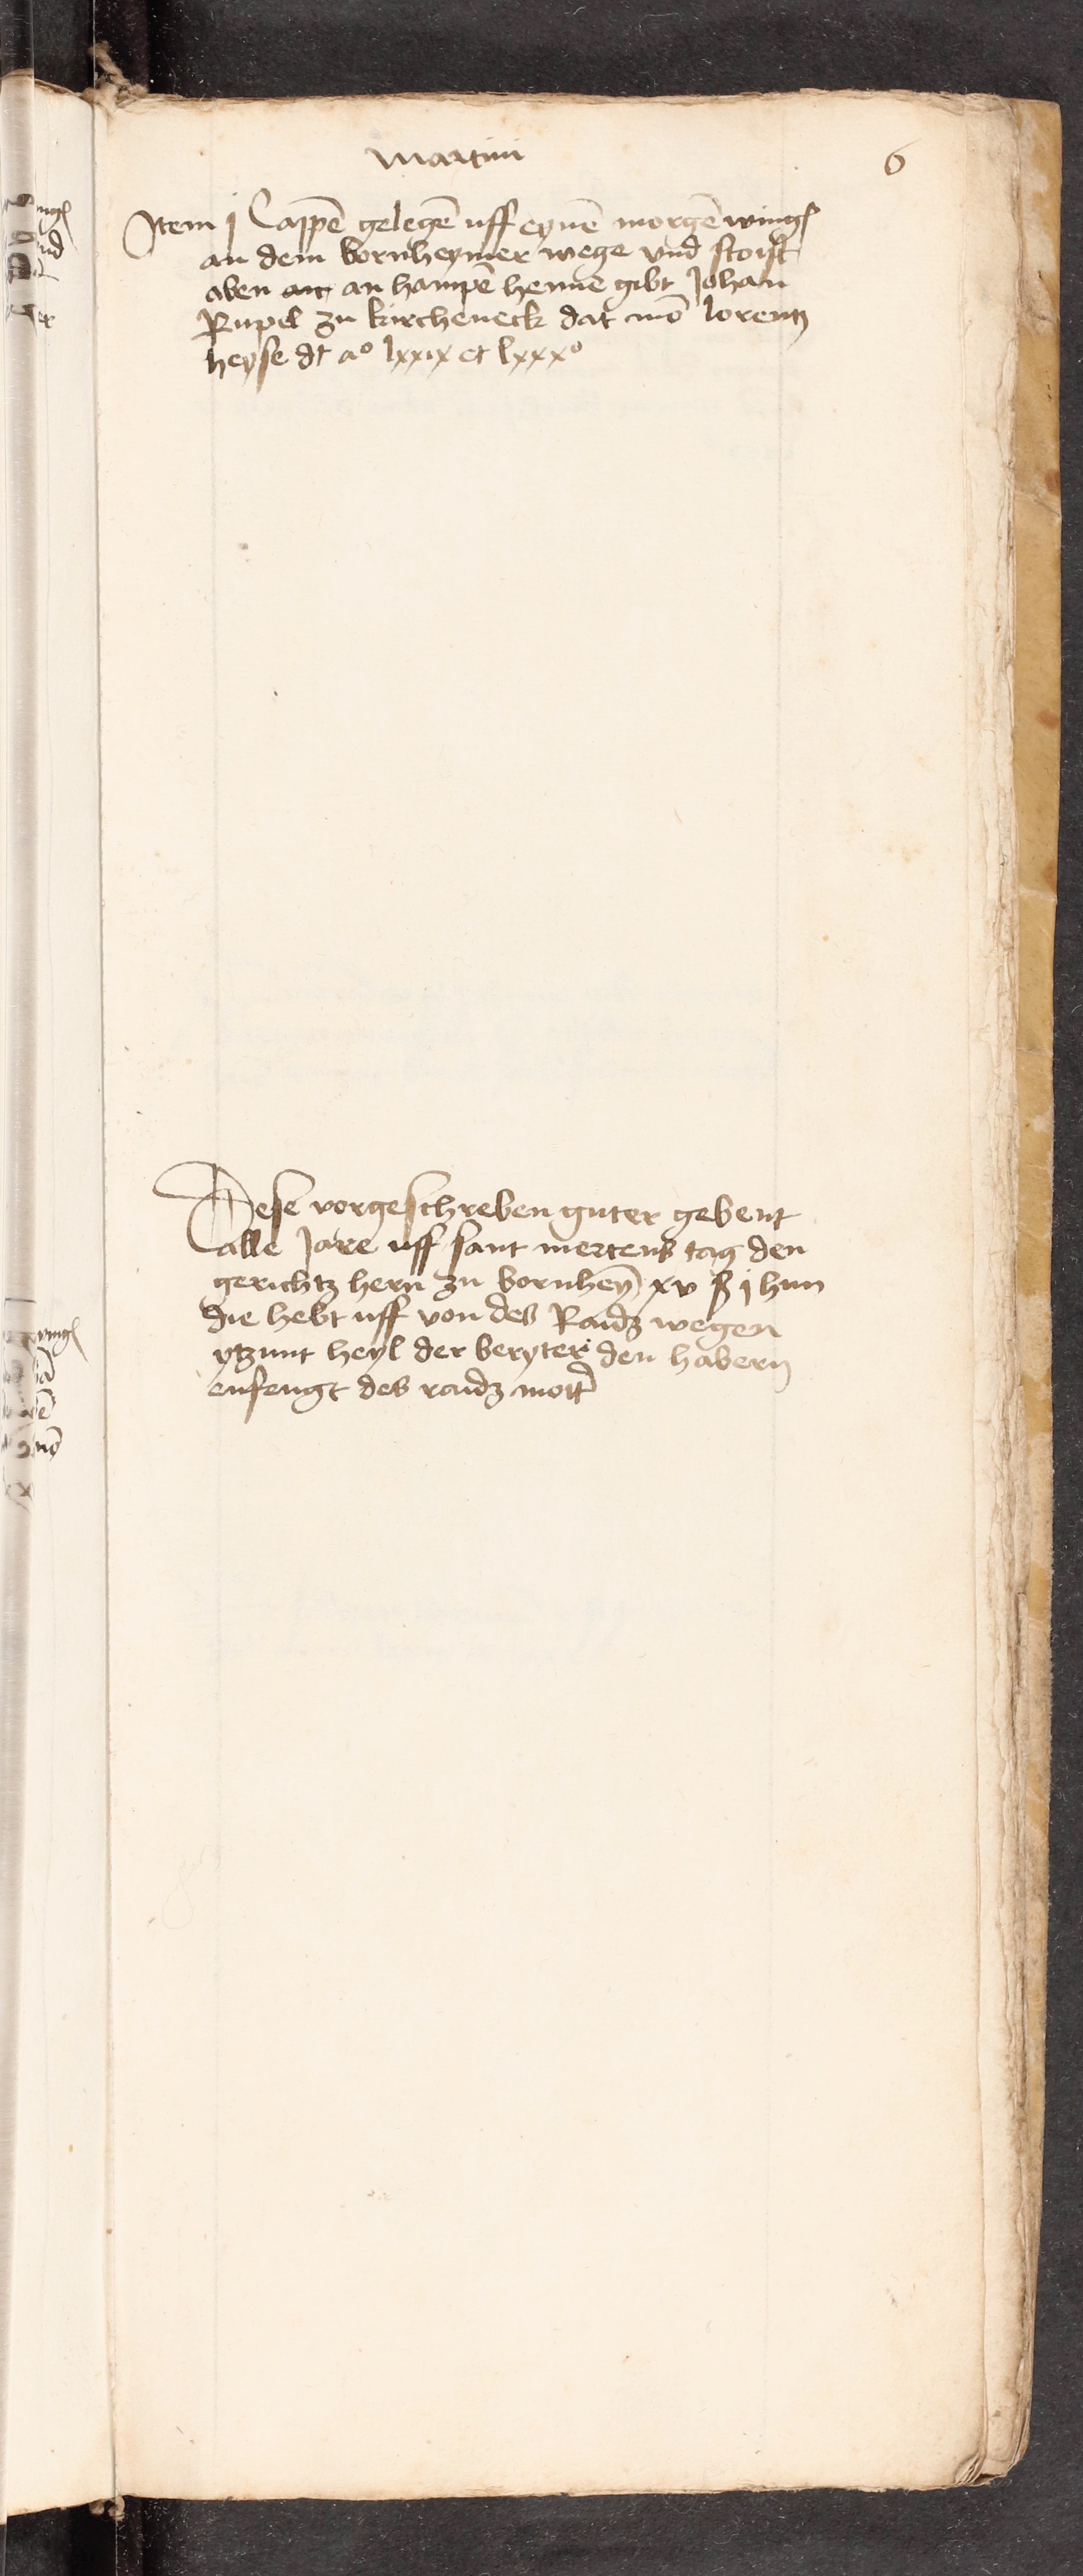 Martini
6
Item j Cappē gelegē uff eynē morgē wing
an dem bornheymer wege vnd stoist
aben an an hampē henne gibt Johan
Rupel zu kircheneck dat mō lorentz
heyse dt aº lxxix et lxxxº
Dese vorgeschreben guter gebent
alle Jare uff sant mertens tag den
gerichtz hern zu bornheȳ xv ß j hun
die hebt uff von des Raidz wegen
ytzunt heyl der beryter den habern
enfengt des raidz mott